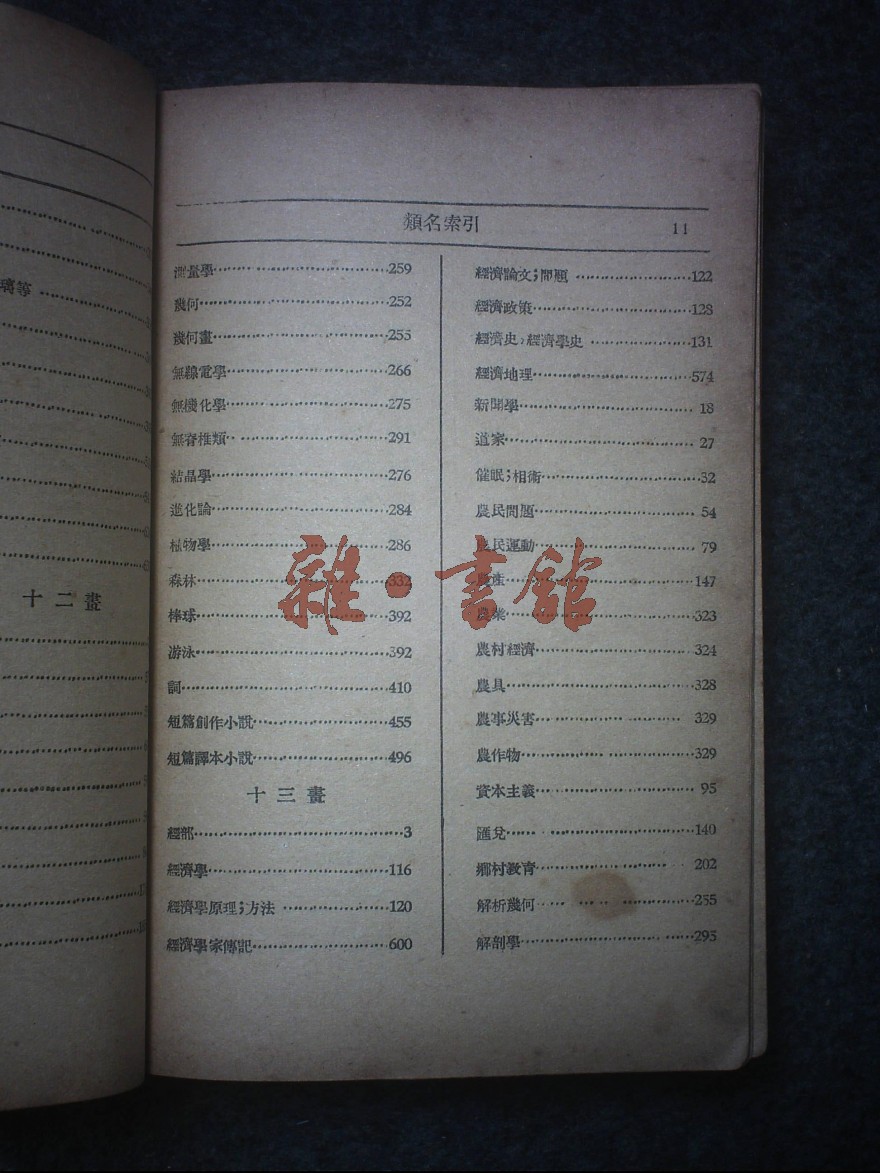 璃等
十二畫
類名索引 11
測量學 259
幾何 252
幾何畫 255
無線電學 266
無機化學 275
無脊椎類 291
結晶學 276
進化論 284
植物學 286
森林 332
棒球 392
游泳 392
詞 410
短篇創作小說 455
短篇譯本小說 496
十三畫
經部 3
經濟學 116
經濟學原理;方法 120
經濟學家傳記 600
經濟論文;問題 122
經濟政策 128
經濟史;經濟學史 131
經濟地理 574
新聞學 18
道家 27
催眠;相術 32
農民問題 54
農民運動 79
農產 147
農業 323
農村經濟 324
農具 328
農事災害 329
農作物 329
資本主義 95
匯兌 140
鄉村教育 202
解析幾何 255
解剖學 293
雜·書館